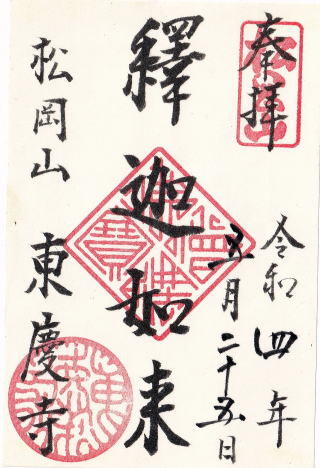 奉拝
令和四年
五月二十五日
釋迦如来
松岡山
東慶寺